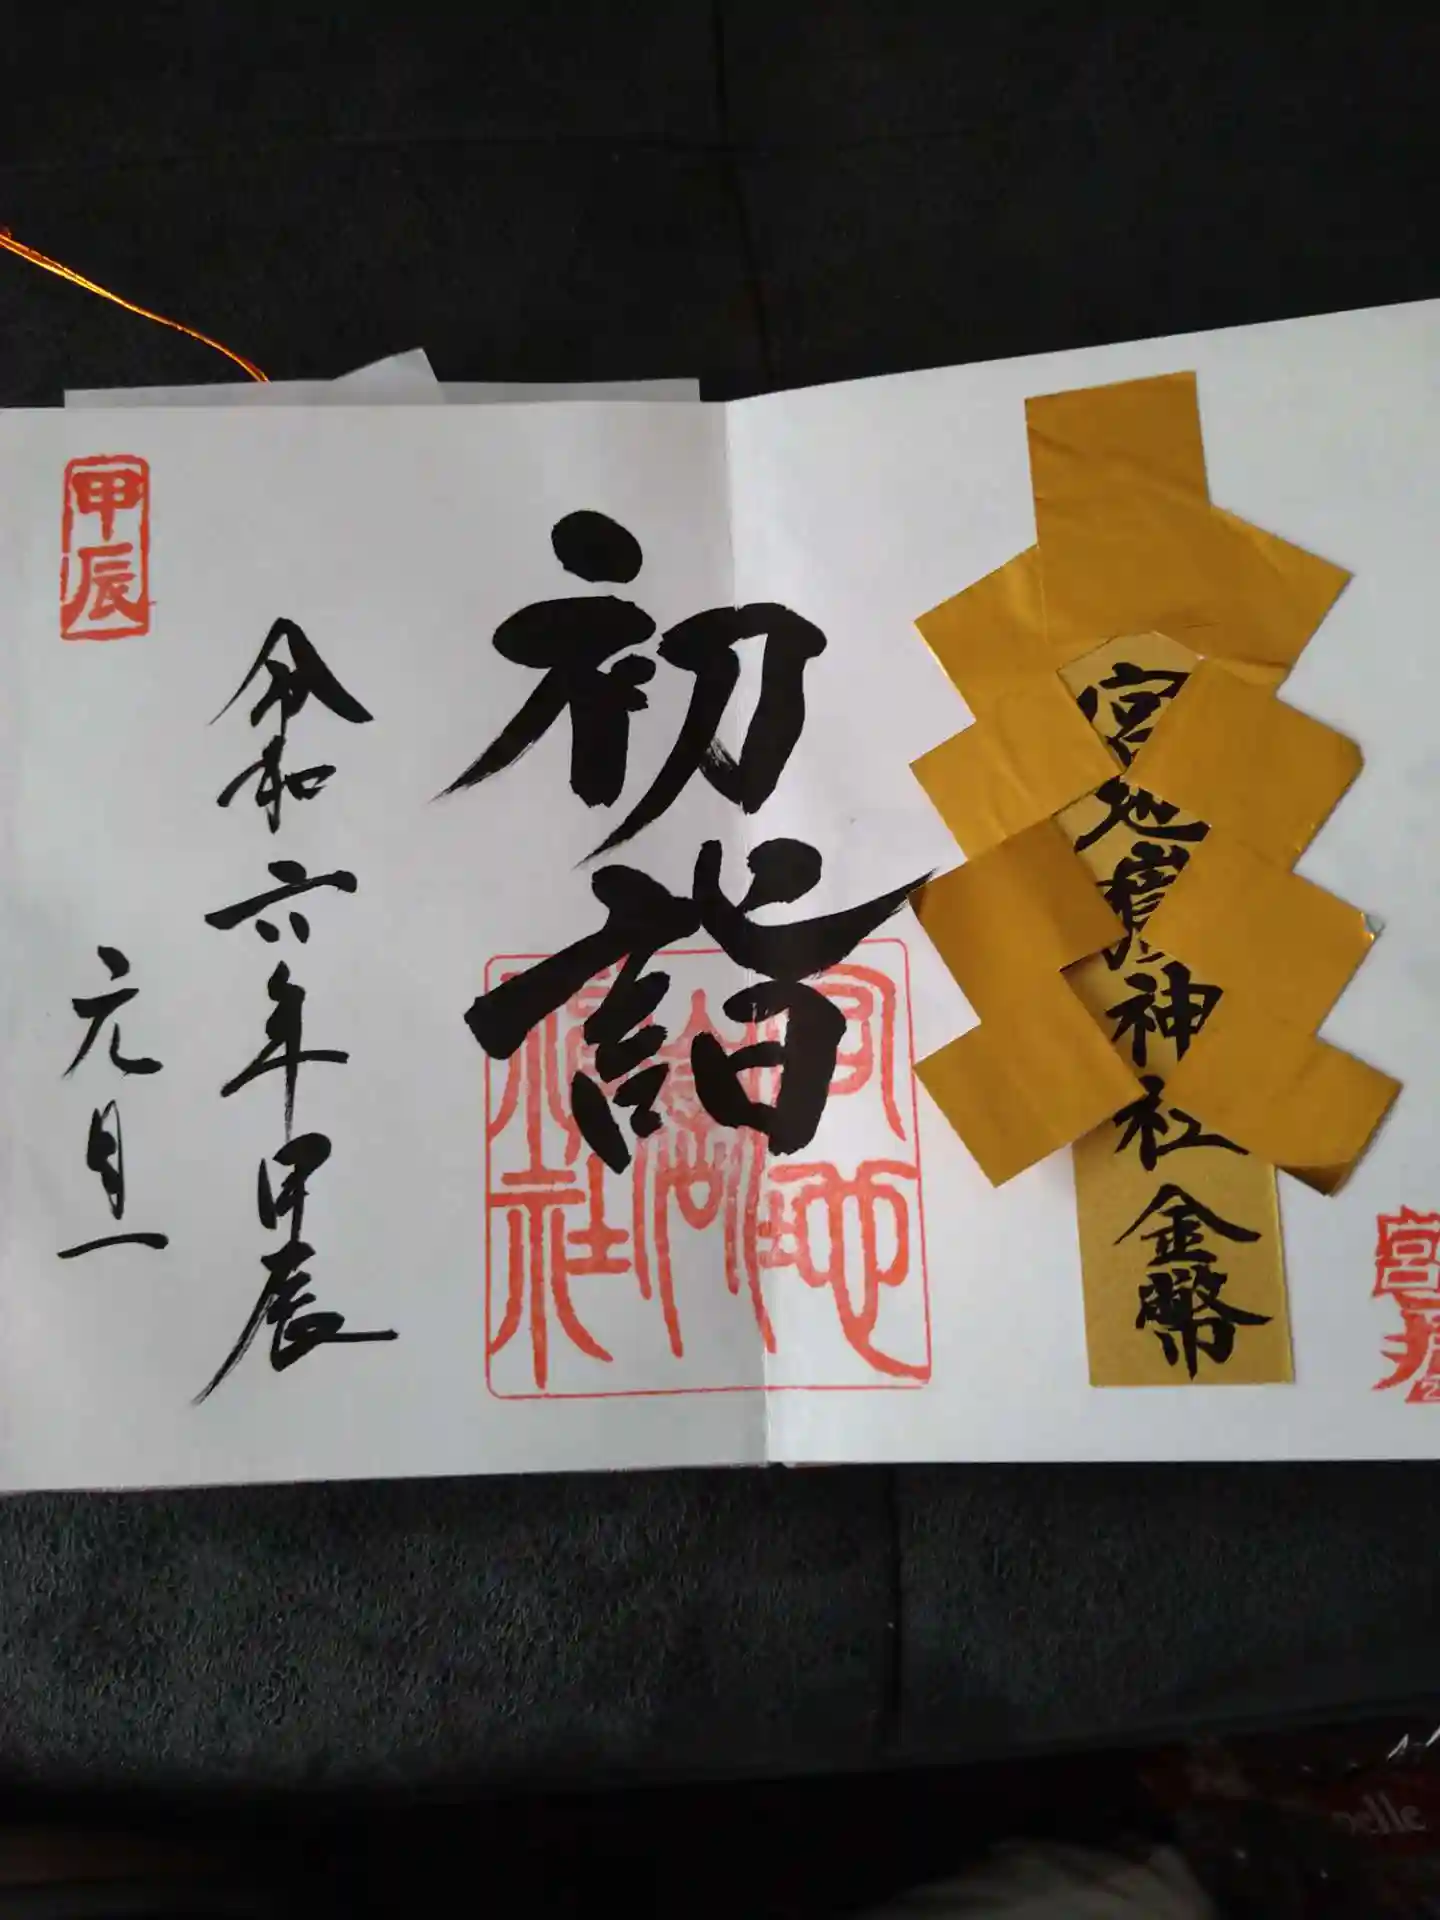 宮地嶽神社金幣
初詣
宮地嶽神社
令和六年甲辰
元旦
甲辰